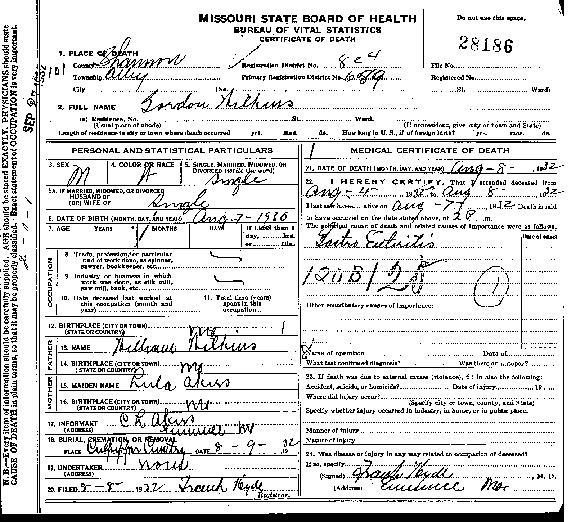 MISSOURI STATE BOARD OF HEALTH
BUREAU OF VITAL STATISTICS
CERTIFICATE OF DEATH
Do not use this space.
28186
1. PLACE OF DEATH
County Shannon
Registration District No. 824
File No.
Township
Primary Registration District No.
Registered No.
City (No. St. Ward)
2. FULL NAME Gordon Wilkins
(a) Residence, No. St. Ward.
(Usual place of abode) (If nonresident, give city or town and State)
Length of residence in city or town where death occurred yrs. mos. ds. How long in U.S., if of foreign birth? yrs. mos. ds.
PERSONAL AND STATISTICAL PARTICULARS
3. SEX M
4. COLOR OR RACE W
5. SINGLE, MARRIED, WIDOWED, OR DIVORCED (write the word) Single
5A. IF MARRIED, WIDOWED, OR DIVORCED
HUSBAND OF
(OR) WIFE OF Single
6. DATE OF BIRTH (MONTH, DAY, AND YEAR) Aug-7-1930
7. AGE YEARS MONTHS DAYS If LESS than 1 day, hrs. or min.
OCCUPATION
8. Trade, profession, or particular kind of work done, as spinner, sawyer, bookkeeper, etc.
9. Industry or business in which work was done, as silk mill, saw mill, bank, etc.
10. Date deceased last worked at this occupation (month and year)
11. Total time (years) spent in this occupation
12. BIRTHPLACE (CITY OR TOWN)
(STATE OR COUNTRY) Mo
FATHER
13. NAME William Wilkins
14. BIRTHPLACE (CITY OR TOWN)
(STATE OR COUNTRY) Mo
MOTHER
15. MAIDEN NAME Lula Akers
16. BIRTHPLACE (CITY OR TOWN)
(STATE OR COUNTRY) Mo
17. INFORMANT C L Akers
(ADDRESS) Mo
18. BURIAL, CREMATION, OR REMOVAL
PLACE DATE 8-9-32
19. UNDERTAKER none
(ADDRESS)
20. FILED 8-8-1932 Frank Hyde
Registrar.
MEDICAL CERTIFICATE OF DEATH
21. DATE OF DEATH (MONTH, DAY, AND YEAR) Aug-8-1932
22. I HEREBY CERTIFY, That I attended deceased from
Aug-4- 1932 to Aug 8- 1932
I last saw h alive on Aug-7 1932 Death is said
to have occurred on the date stated above, at m.
The principal cause of death and related causes of importance were as follows:
Date of onset
Gastro Enteritis
120B
Other contributory causes of importance:
Name of operation Date of
What test confirmed diagnosis? Was there an autopsy?
23. If death was due to external causes (violence), fill in also the following:
Accident, suicide, or homicide? Date of injury 19
Where did injury occur?
(Specify city or town, county, and State)
Specify whether injury occurred in industry, in home, or in public place.
Manner of injury
Nature of injury
24. Was disease or injury in any way related to occupation of deceased?
If so, specify
(Signed) Frank Hyde, M. D.
(Address) Eminence Mo.
N. B.—Every item of information should be carefully supplied. AGE should be stated EXACTLY. PHYSICIANS should state
CAUSE OF DEATH in plain terms, so that it may be properly classified. Exact statement of OCCUPATION is very important.